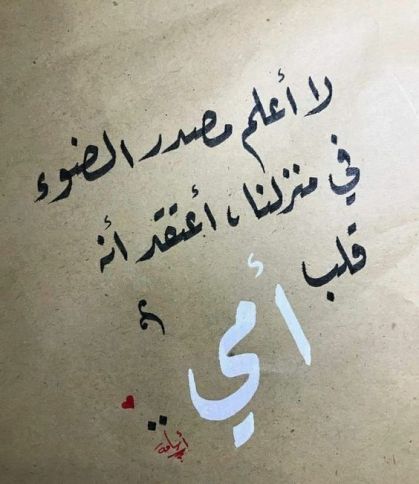 لا أعلم مصدر الضوء
في منزلنا، أعتقد أنه
قلب
أمي
أسامة